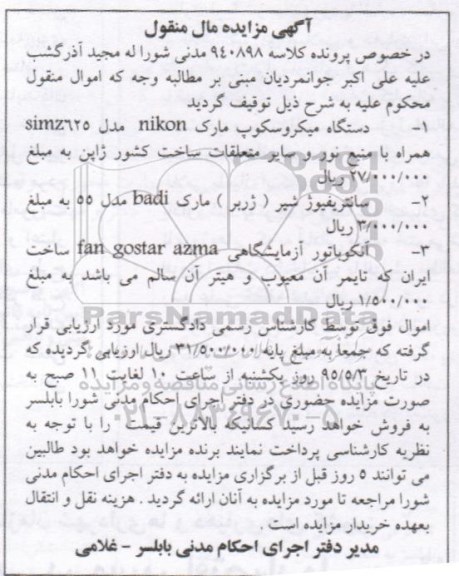 آگهی مزایده مال منقول
در خصوص پرونده کلاسه ۹۴۰۸۹۸ مدنی شورا له مجید آذرگشب
علیه علی اکبر جوانمردیان مبنی بر مطالبه وجه که اموال منقول
محکوم علیه به شرح ذیل توقیف گردید
۱- دستگاه میکروسکوپ مارک nikon مدل simz٦٢٥
همراه با منبع نور و سایر متعلقات ساخت کشور ژاپن به مبلغ
۲۷/۰۰۰/۰۰۰ ریال
۲- سانتریفیوژ شیر ( ژربر ) مارک badi مدل ۵۵ به مبلغ
۳/۰۰۰/۰۰۰ ریال
۳- انکوباتور آزمایشگاهی fan gostar azma ساخت
ایران که تایمر آن معیوب و هیتر آن سالم می باشد به مبلغ
۱/۵۰۰/۰۰۰ ریال
اموال فوق توسط کارشناس رسمی دادگستری مورد ارزیابی قرار
گرفته که جمعاً به مبلغ پایه ۳۱/۵۰۰/۰۰۰ ریال ارزیابی گردیده که
در تاریخ ۹۵/۵/۳ روز یکشنبه از ساعت ۱۰ لغایت ۱۱ صبح به
صورت مزایده حضوری در دفتر اجرای احکام مدنی شورا بابلسر
به فروش خواهد رسید کسانیکه بالاترین قیمت را با توجه به
نظریه کارشناسی پرداخت نمایند برنده مزایده خواهد بود طالبین
می توانند ۵ روز قبل از برگزاری مزایده به دفتر اجرای احکام مدنی
شورا مراجعه تا مورد مزایده به آنان ارائه گردید . هزینه نقل و انتقال
بعهده خریدار مزایده است .
مدیر دفتر اجرای احکام مدنی بابلسر - غلامی
ParsNamadData
پایگاه اطلاع رسانی مناقصه و مزایده
۰۲۱-۸۸۳۴۹۶۷۰-۵